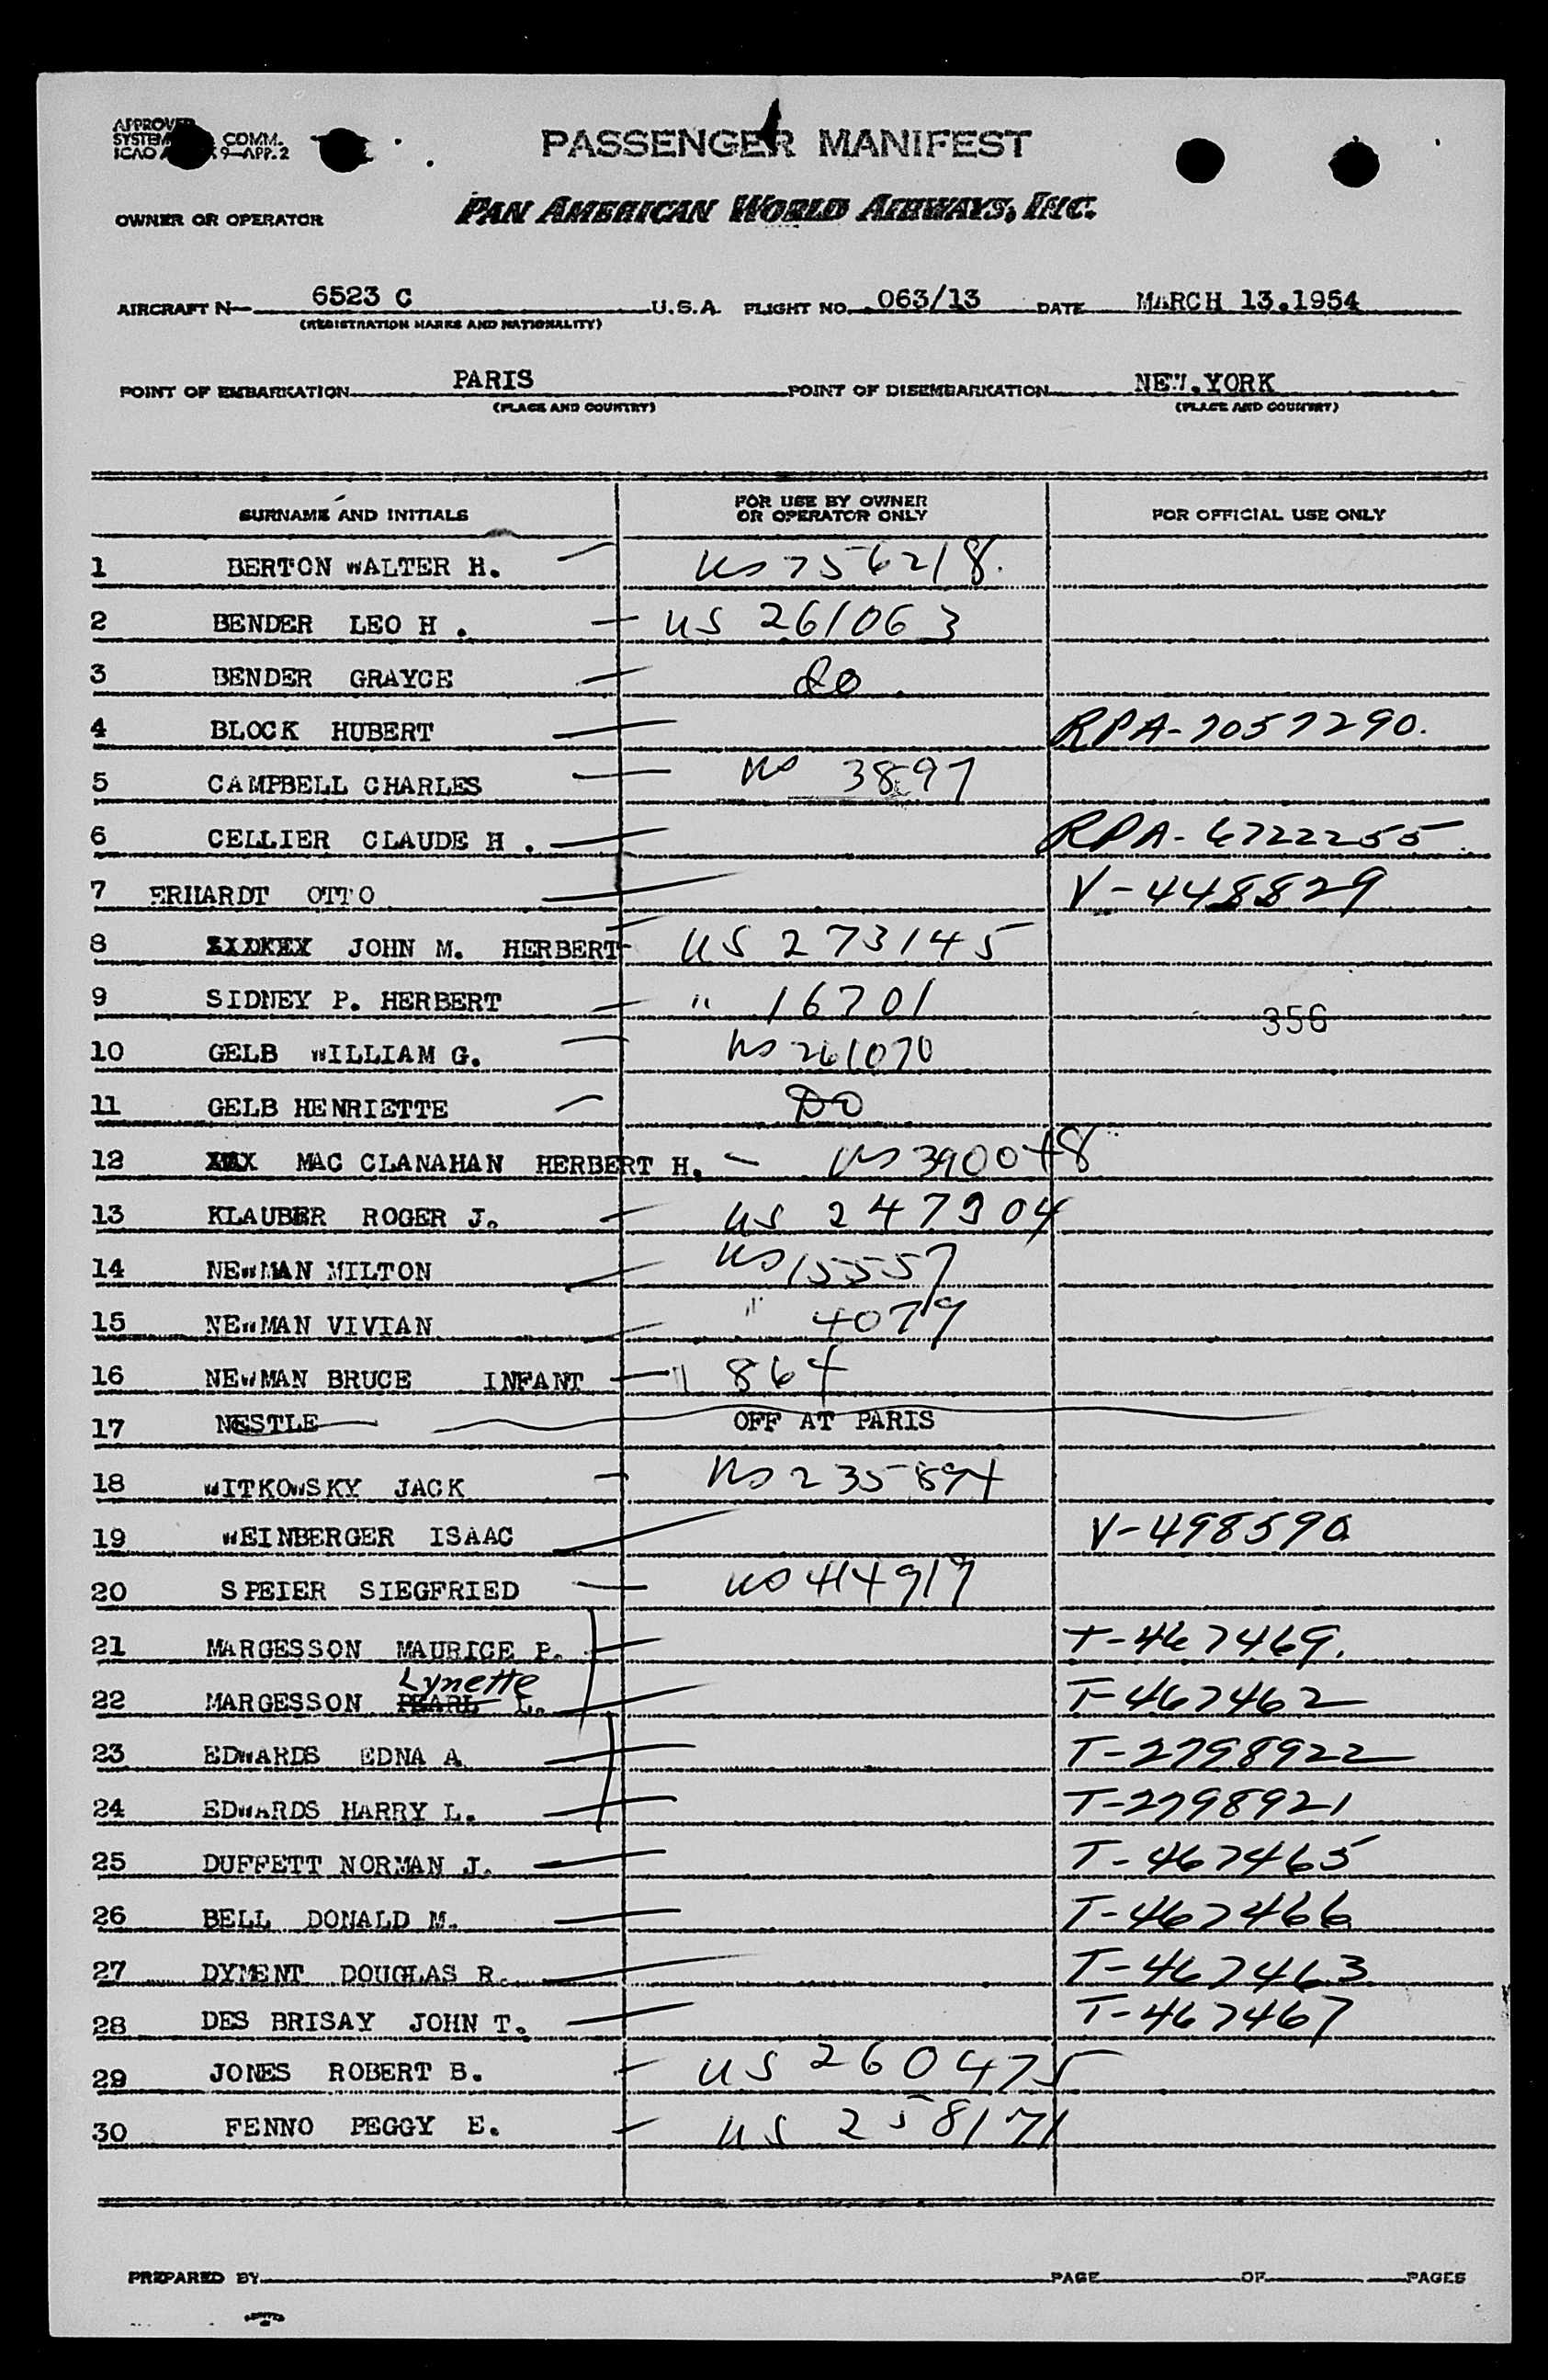 PASSENGER MANIFEST
COMM.
9-APP.2
OWNER OR OPERATOR PAN AMERICAN WORLD AIRWAYS, INC.
AIRCRAFT N- 6523 C U.S.A. FLIGHT NO. 063/13 DATE MARCH 13.1954
(REGISTRATION MARKS AND NATIONALITY)
POINT OF EMBARKATION PARIS POINT OF DISEMBARKATION NEW.YORK
(PLACE AND COUNTRY) (PLACE AND COUNTRY)
SURNAME AND INITIALS FOR USE BY OWNER OR OPERATOR ONLY FOR OFFICIAL USE ONLY
1 BERTON WALTER H. US 756218.
2 BENDER LEO H . US 261063
3 BENDER GRAYCE do
4 BLOCK HUBERT RPA-7057290.
5 CAMPBELL CHARLES US 3897
6 CELLIER CLAUDE H . RPA-6722255
7 ERHARDT OTTO V-448829
8 JOHN M. HERBERT US 273145
9 SIDNEY P. HERBERT " 16701
356
10 GELB WILLIAM G. US 261070
11 GELB HENRIETTE DO
12 MAC CLANAHAN HERBERT H. US 390048
13 KLAUBER ROGER J. US 247904
14 NEWMAN MILTON US 15557
15 NEWMAN VIVIAN " 4079
16 NEWMAN BRUCE INFANT " 864
17 NESTLE OFF AT PARIS
18 WITKOWSKY JACK US 235894
19 WEINBERGER ISAAC V-498590
20 SPEIER SIEGFRIED US 414919
21 MARGESSON MAURICE P. T-467469.
Lynette
22 MARGESSON PEARL L. T-467462
23 EDWARDS EDNA A T-2798922
24 EDWARDS HARRY L. T-2798921
25 DUFFETT NORMAN J. T-467465
26 BELL DONALD M. T-467466
27 DYMENT DOUGLAS R. T-467463
28 DES BRISAY JOHN T. T-467467
29 JONES ROBERT B. US 260475
30 FENNO PEGGY E. US 258171
PREPARED BY PAGE OF PAGES